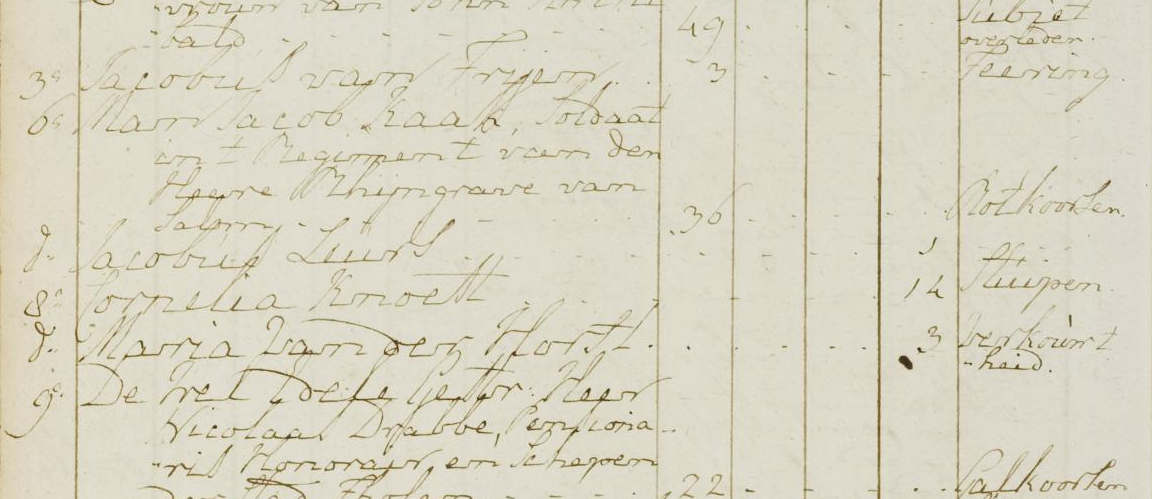 vrouw van Johan
bald. 49 Subiet overleden.
3e Jacobus van Frijen 3 Teering.
6e Man Jacob Kaak, Soldaat
in t Regiment van den
Heere Rhijngrave van
Salm. 36 Rotkoorsen.
do Jacobus Luurs 1
8e Cornelia Knoett 14 Stuipen.
do Maria van der Horst. 3 Verkouwt
-heid.
9e De Wel Edele Gestr: Heer
Nicolaas Drabbe, Pensiona-
-ris Honorair, en Schepen
der Stad Tholen 22 Galkoorsen